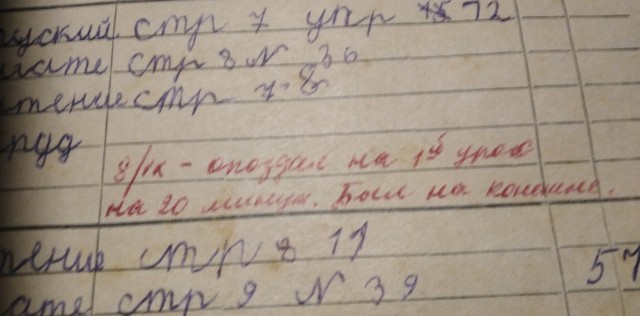 усский стр 7 упр 72
мате стр 8 № 36
чтение стр 7-8
пдд
8/IX - опоздал на 1й урок
на 20 минут. Был на конюшне.
чтение стр 8 11
мате стр 9 № 39 57